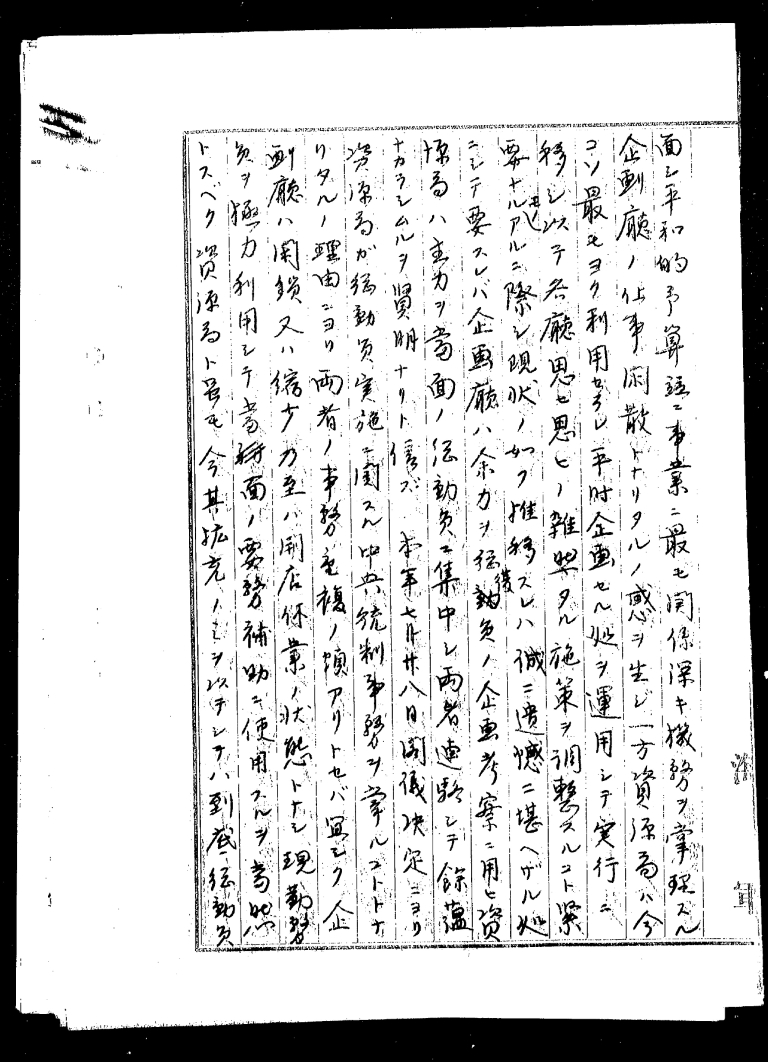 面シ平和的予算並ニ事業ニ最モ関係深キ機務ヲ掌理スル
企画廳ノ仕事閑散トナリタルノ感ヲ生ジ一方資源局ハ今
コソ最モヨク利用セラレ平時企画セル処ヲ運用シテ実行ニ
移シ以テ各廳思ヒ思ヒノ雑然タル施策ヲ調整スルコト緊
要ナルモノアルニ際シ現状ノ如ク推移スレハ誠ニ遺憾ニ堪ヘザル処
ニシテ要スレバ企画廳ハ余力ヲ総動員ノ企画考案ニ用ヒ資
源局ハ主力ヲ当面ノ総動員ニ集中シ両者連繋シテ餘蘊
ナカラシムルヲ賢明ナリト信ズ 本年七月廿八日閣議決定ニヨリ
資源局ガ総動員実施ニ関スル中央統制事務ヲ掌ルコトトナ
リタルノ理由ニヨリ両者ノ事務重複ノ煩アリトセバ宜シク企
画廳ハ閉鎖又ハ縮少乃至ハ開店休業ノ状態トナシ現勤務
員ヲ極力利用シテ当面ノ要務補助ニ使用スルヲ当然
トスベク資源局ト雖モ今其拡充ノミヲ以テシテハ到底総動員